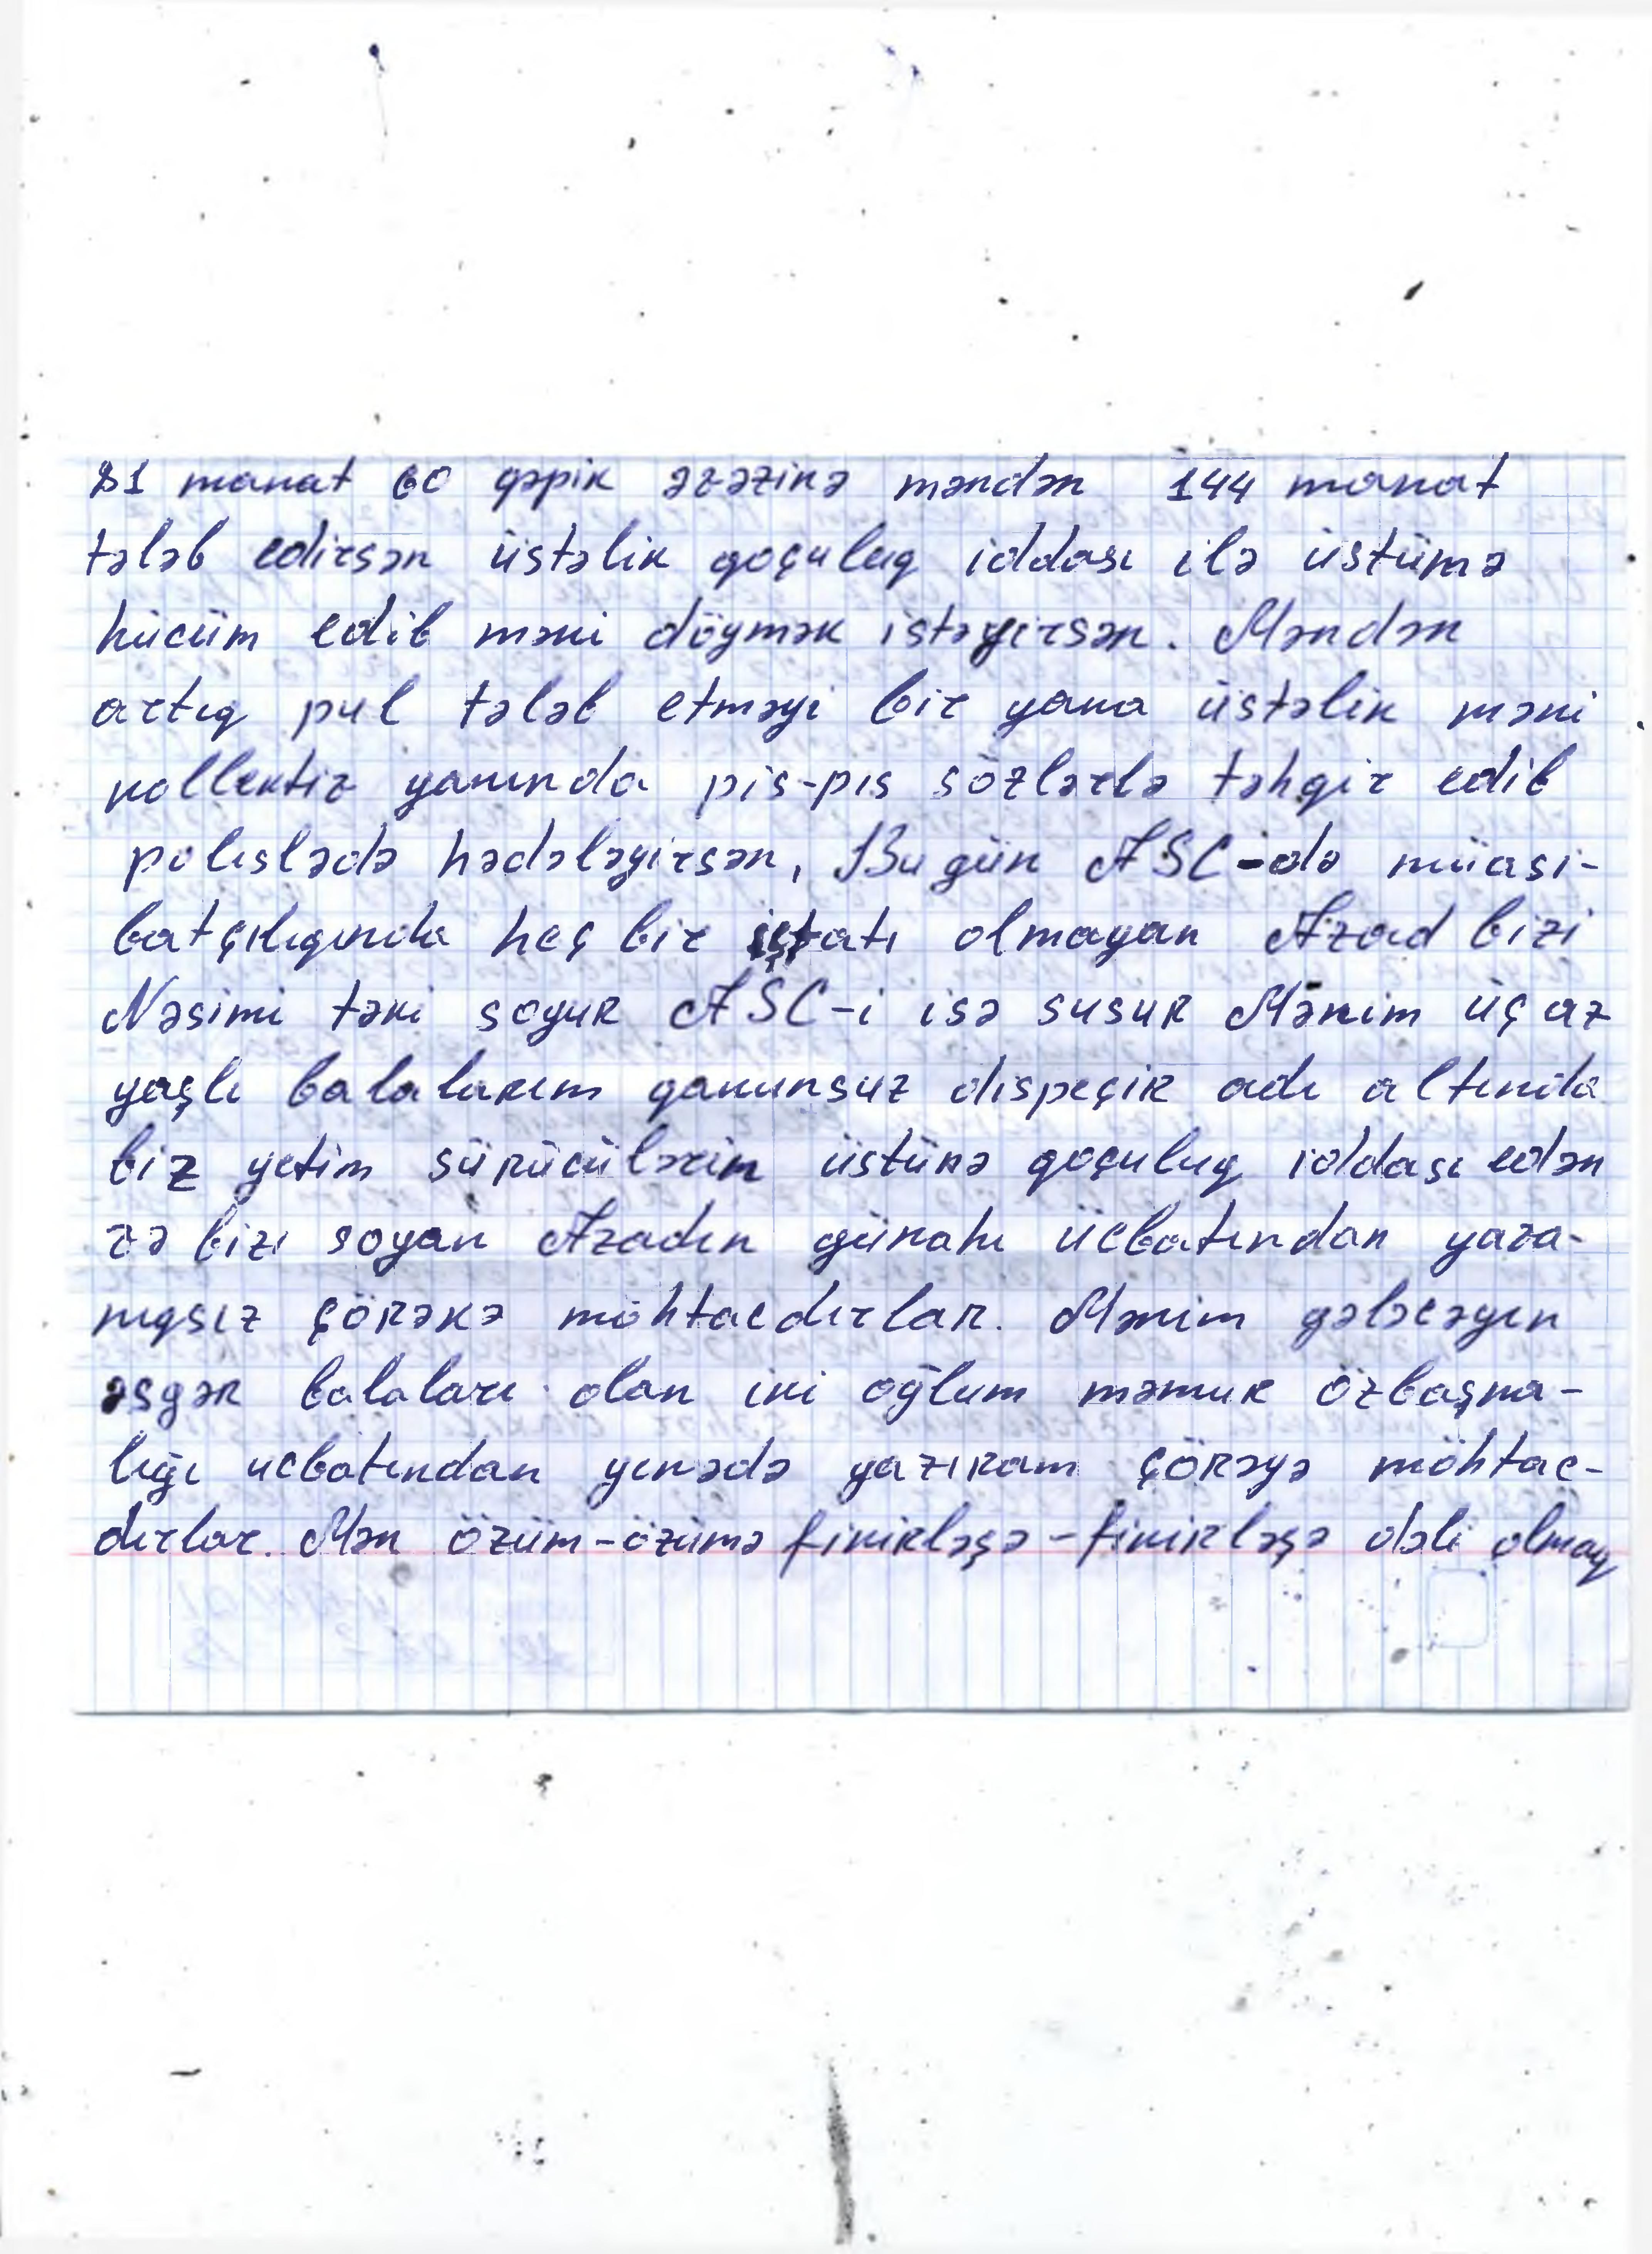 81 manat 60 qəpik əvəzinə məndən 144 manat
tələb edirsən üstəlik qoçuluq iddası ilə üstümə
hücüm edib məni döymək istəyirsən. Məndən
artıq pul tələb etməyi bir yana üstəlik məni
kollektiv yanında pis-pis sözlərlə təhqir edib
polislədə hədələyirsən, Bu gün ASC-də müasi-
batçılıqında heç bir iştatı olmayan Azad bizi
Nəsimi təki soyur ASC-i isə susur Mənim üç az
yaşlı balalarım qanunsuz dispeçir adı altında
biz yetim sürücülərin üstünə qoçuluq iddası edən
və bizi soyan Azadın günahı ücbatından yava-
nıqsız çörəkə möhtacdırlar. Mənim gələcəyin
əsgər balaları olan iki oğlum məmur özbaşına-
lığı ucbatından yenədə yazıram çörəyə möhtac-
dırlar. Mən özüm-özümə fikirləşə-fikirləşə dəli olmaq